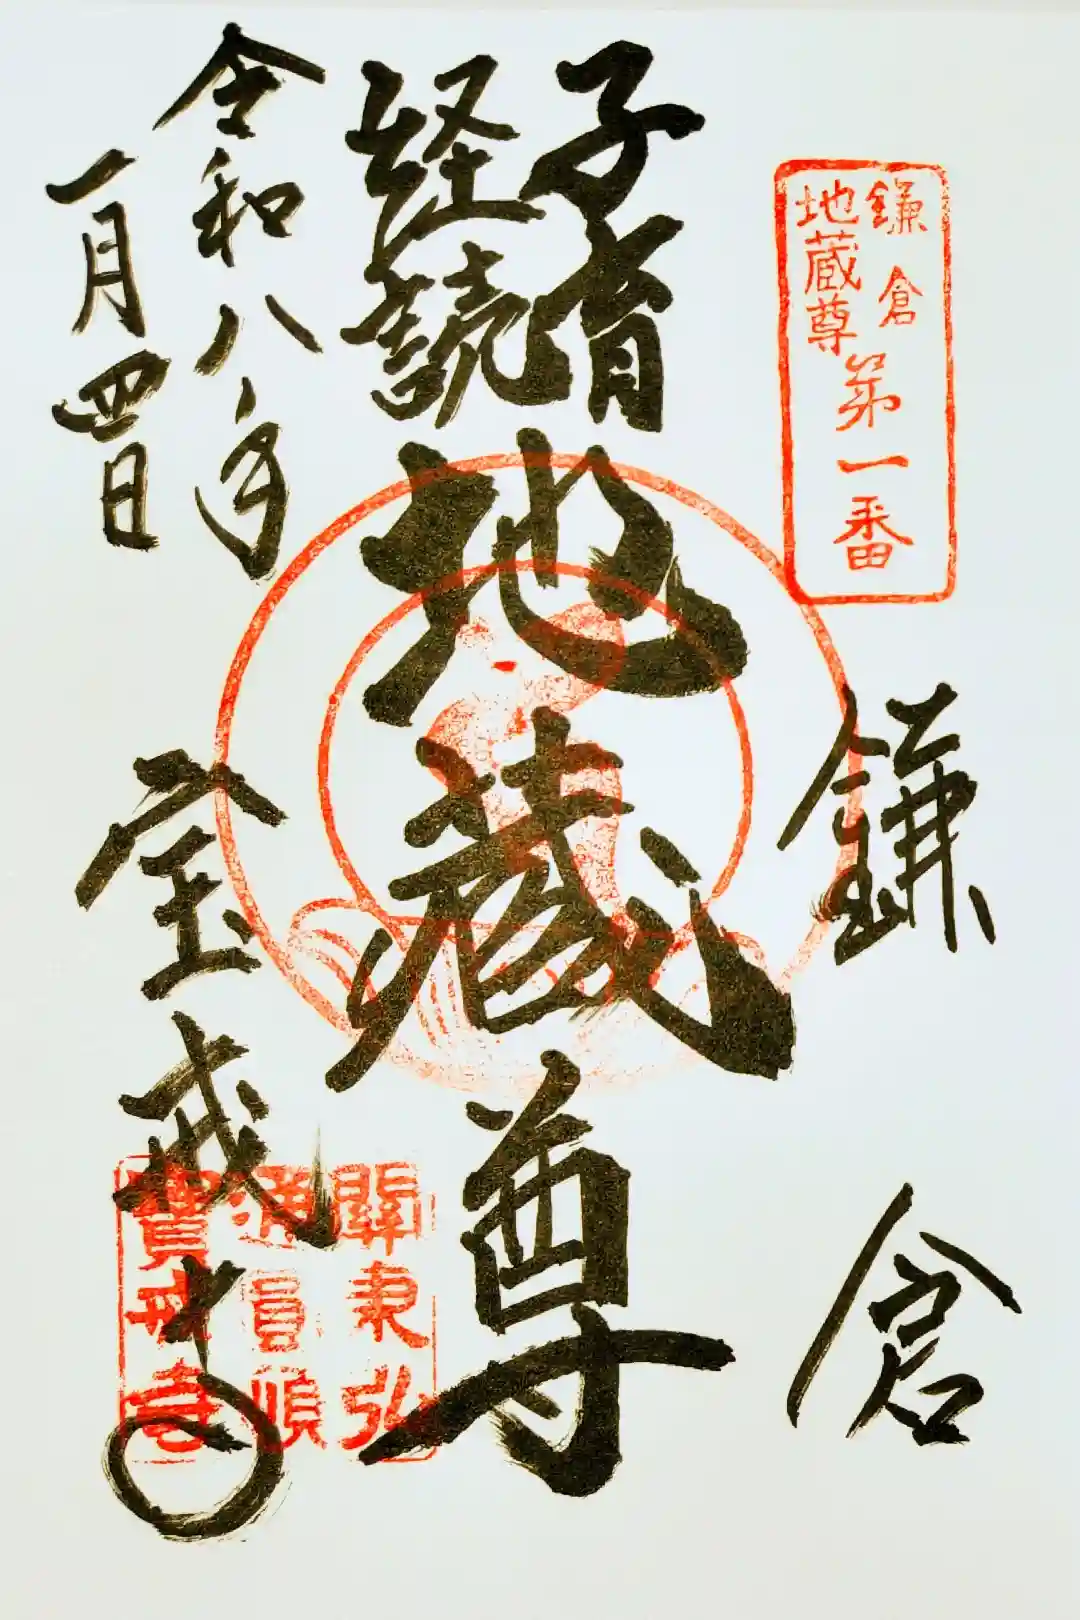 鎌倉
地蔵尊
第一番
鎌倉
子育
経読
地蔵尊
令和八年
一月四日
宝戒寺
關東弘
通員頓
寶戒寺